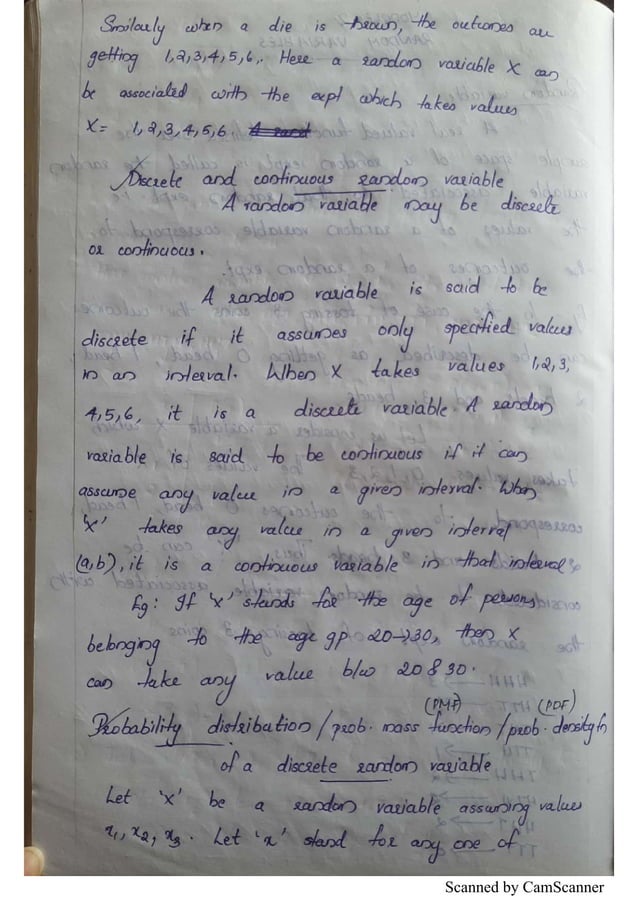 Similarly when a die is thrown, the outcomes are
getting 1,2,3,4,5,6,. Here a random variable X can
be associated with the expt which takes values
X= 1,2,3,4,5,6.
Discrete and continuous random variable
A random variable may be discrete
or continuous.
A random variable is said to be
discrete if it assumes only specified values
in an interval. When X takes values 1,2,3,
4,5,6, it is a discrete variable. A random
variable is said to be continuous if it can
assume any value in a given interval. When
'x' takes any value in a given interval
(a,b), it is a continuous variable in that interval
Eg: If 'x' stands for the age of persons
belonging to the age gp 20→30, then x
can take any value b/w 20 & 30.
(PMF) (PDF)
Probability distribution / prob. mass function / prob. density fn
of a discrete random variable
Let 'x' be a random variable assuming values
x₁, x₂, x₃. Let 'x' stand for any one of
Scanned by CamScanner